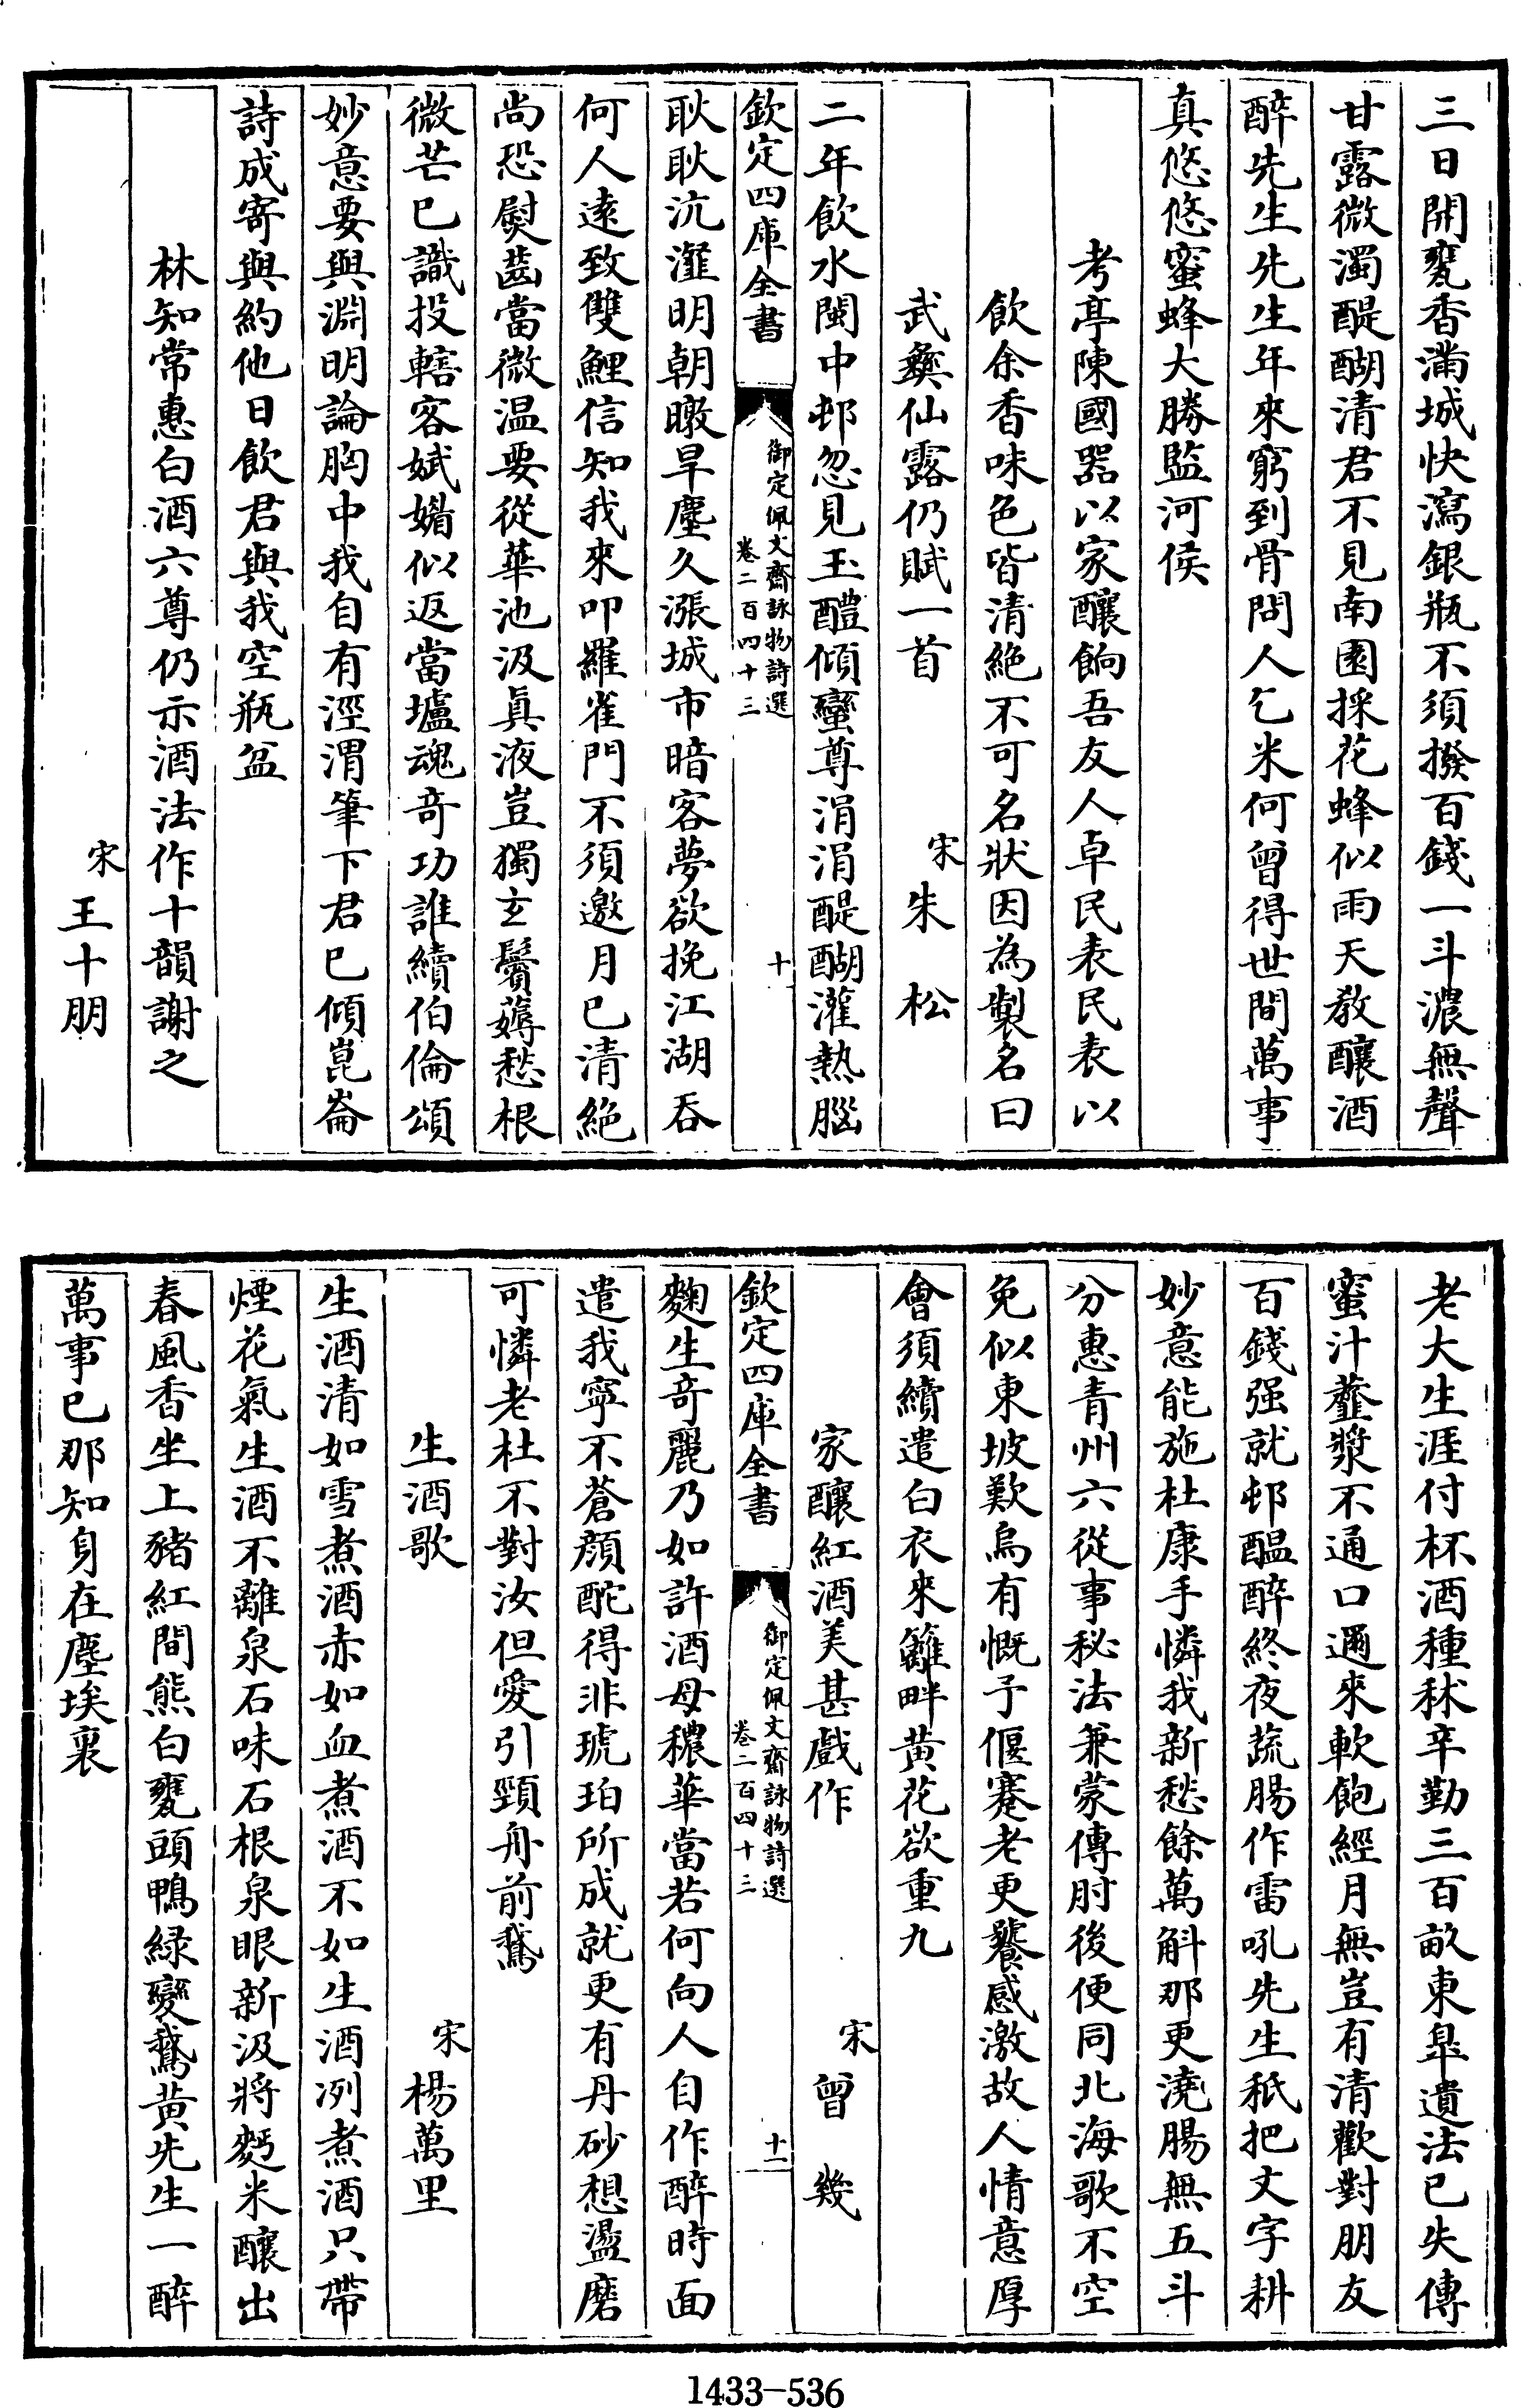 三日開甕香滿城快瀉銀瓶不須撥百錢一斗濃無聲
甘露微濁醍醐清君不見南園採花蜂似雨天教釀酒
醉先生先生年來窮到骨問人乞米何曾得世間萬事
真悠悠蜜蜂大勝監河侯
考亭陳國器以家釀餉吾友人卓民表民表以
飲余香味色皆清絶不可名狀因為製名曰
武彝仙露仍賦一首
宋朱松
二年飲水閩中邨忽見玉醴傾蠻尊涓涓醍醐灌熱腦
欽定四庫全書
御定佩文齋詠物詩選
卷二百四十三
十
耿耿沆瀣明朝暾旱塵久漲城市暗客夢欲挽江湖吞
何人逺致雙鯉信知我來叩羅雀門不須邀月已清絶
尚恐熨齒當微温要從華池汲真液豈獨玄鬢薅愁根
微芒已識投轄客娬媚似返當壚魂奇功誰續伯倫頌
妙意要與淵明論胸中我自有涇渭筆下君已傾崑崙
詩成寄與約他日飲君與我空瓶盆
林知常惠白酒六尊仍示酒法作十韻謝之
宋王十朋
老大生涯付杯酒種秫辛勤三百畝東皐遺法已失傳
蜜汁虀漿不通口邇來軟飽經月無豈有清歡對朋友
百錢强就邨醖醉終夜蔬腸作雷吼先生秖把文字耕
妙意能施杜康手憐我新愁餘萬斛那更澆腸無五斗
分惠青州六從事秘法兼蒙傳肘後便同北海歌不空
免似東坡歎烏有慨予偃蹇老更饕感激故人情意厚
會須續遣白衣來籬畔黄花欲重九
家釀紅酒美甚戲作
宋曾幾
欽定四庫全書
御定佩文齋詠物詩選
卷二百四十三
十一
麴生奇麗乃如許酒母穠華當若何向人自作醉時面
遣我寧不蒼顔酡得非琥珀所成就更有丹砂想盪磨
可憐老杜不對汝但愛引頸舟前鵞
生酒歌
宋楊萬里
生酒清如雪煮酒赤如血煮酒不如生酒冽煮酒只帶
煙花氣生酒不離泉石味石根泉眼新汲將麫米釀出
春風香坐上豬紅間熊白甕頭鴨緑變鵞黄先生一醉
萬事已那知身在塵埃裏
1433-536